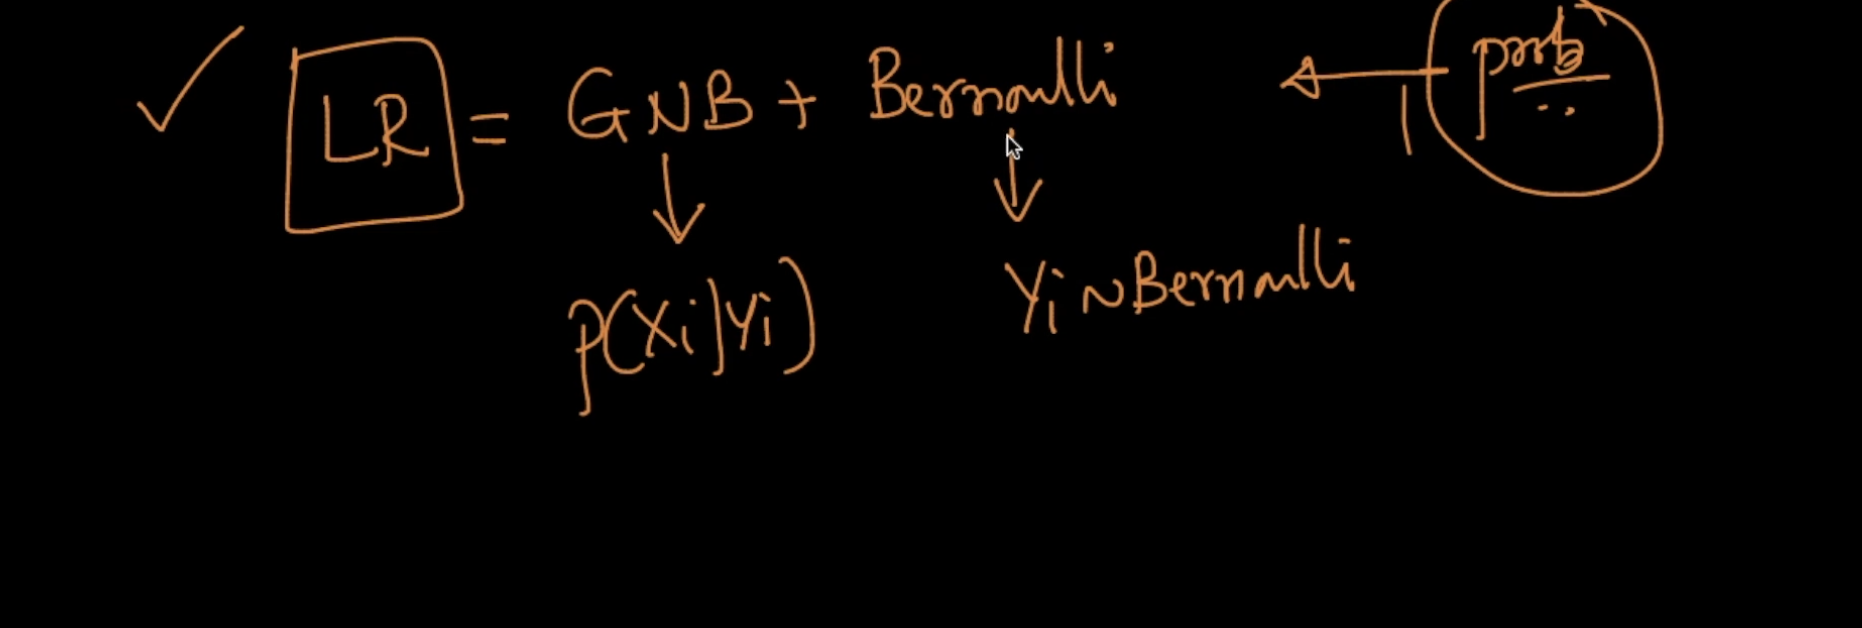 LR = GNB + Bernoulli
prob
P(Xi|Yi)
Yi ~ Bernoulli